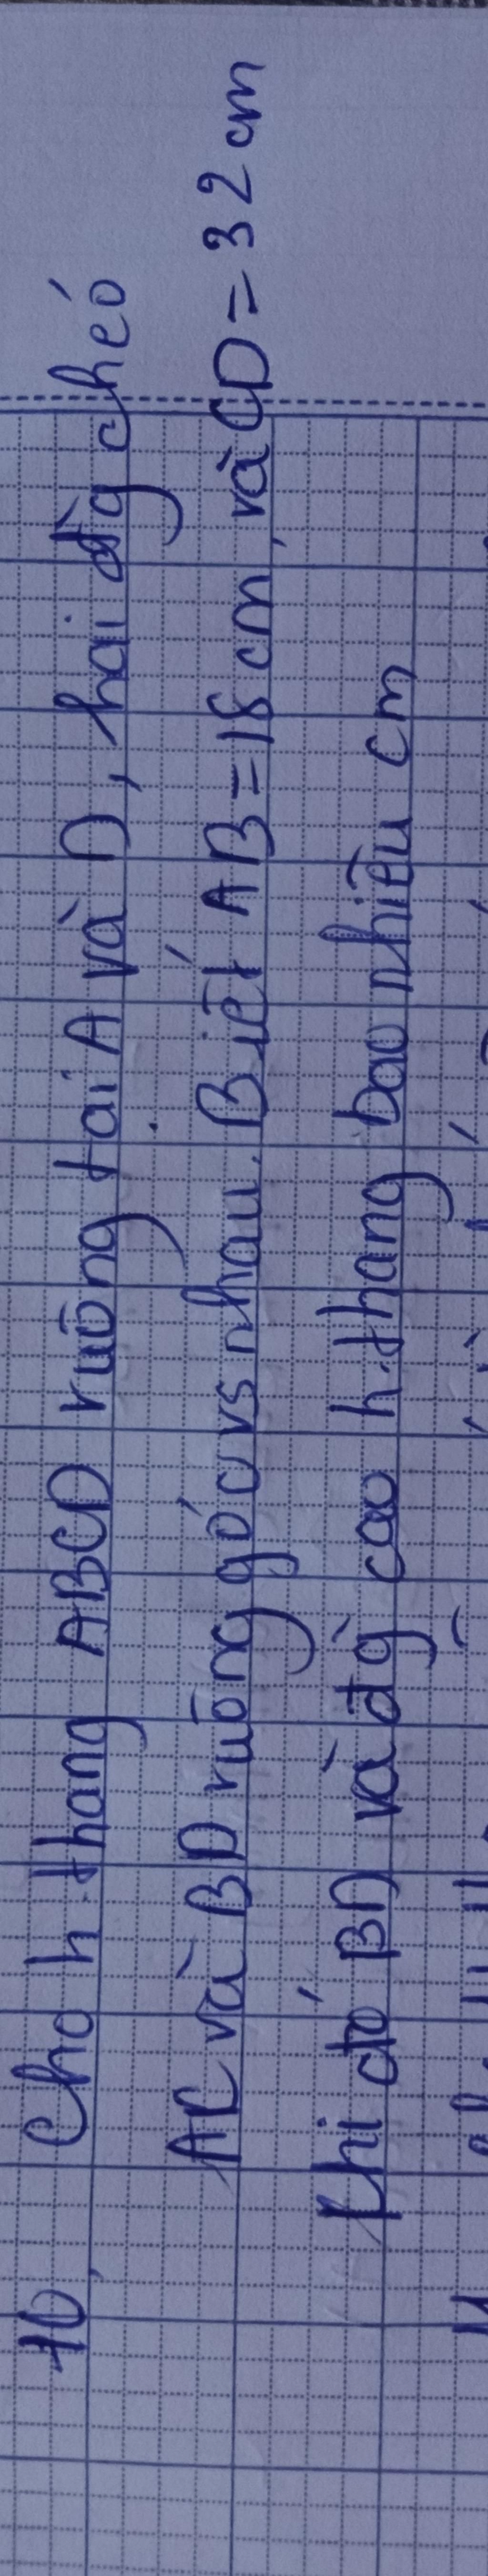 10, Cho h.thang ABCD vuông tại A và D, hai đg chéo
AC và BD vuông góc vs nhau. Biết AB = 18 cm, và CD = 32 cm
khi đó BD và đg cao h.thang bao nhiêu cm